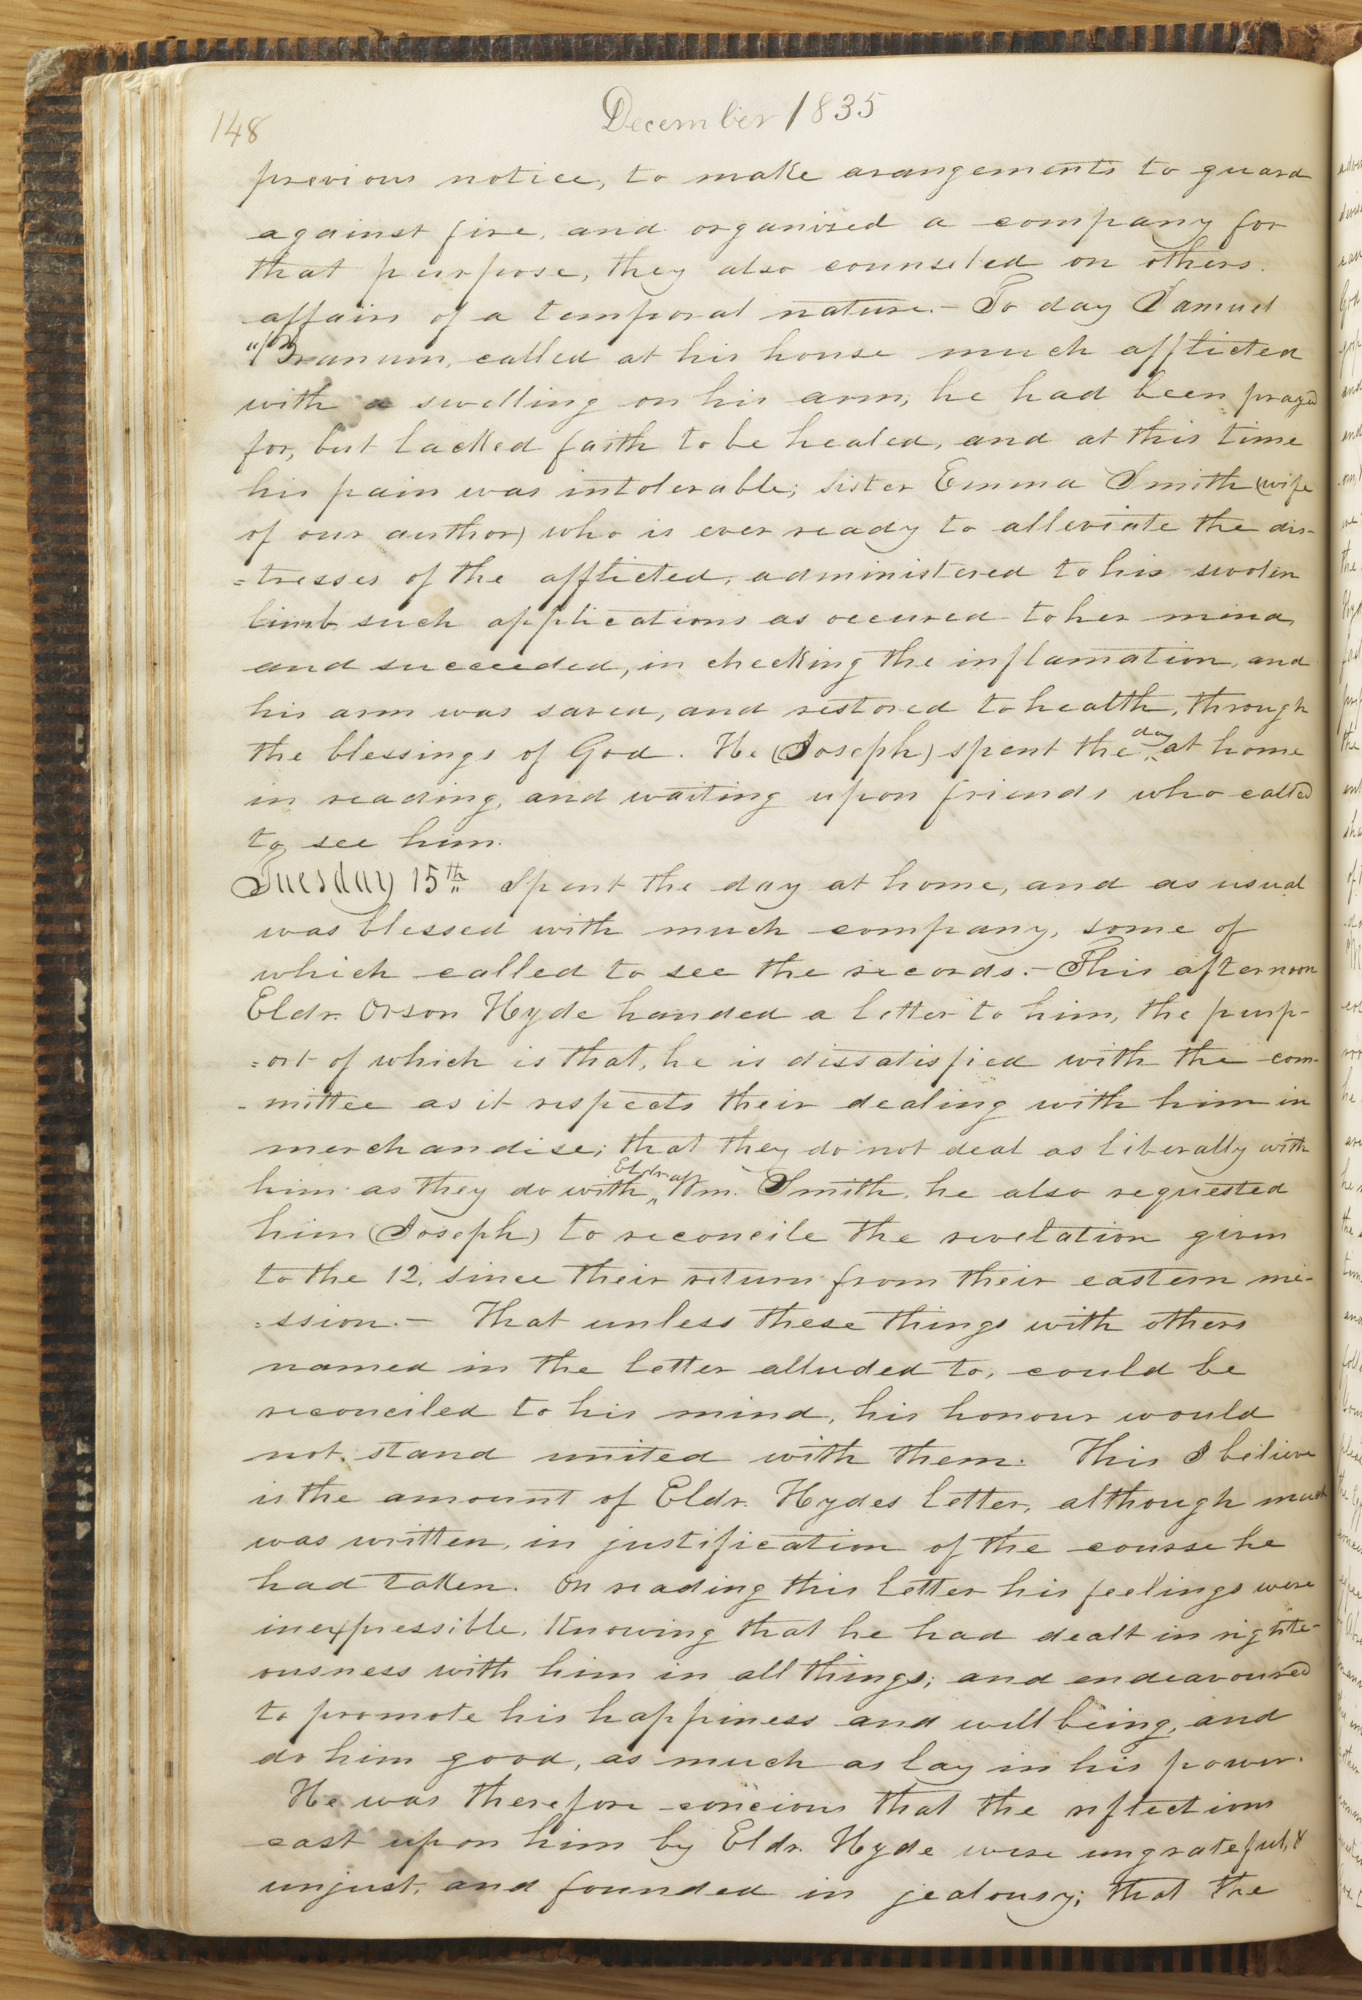 148
December 1835
previous notice, to make arangements to guard
against fire, and organized a company for
that purpose, they also counseled on others
affairs of a temporal nature.– To day Samuel
"Branum, called at his house much afflicted
with a swelling on his arm, he had been prayed
for, but lacked faith to be healed, and at this time
his pain was intolerable; sister Emma Smith (wife
of our author) who is ever ready to alleviate the dis-
=tresses of the afflicted, administered to his swolen
limb such applications as occured to her mind,
and succeeded, in checking the inflamation, and
his arm was saved, and restored to health, through
the blessings of God. He (Joseph) spent the day at home
in reading, and waiting upon friends who called
to see him.
Tuesday 15th Spent the day at home, and as usual
was blessed with much company, some of
which called to see the records.– This afternoon
Eldr. Orson Hyde handed a letter to him, the purp-
=ort of which is that, he is dissatisfied with the com-
-mittee as it respects their dealing with him in
merchandise; that they do not deal as liberally with
him as they do with Eldr. Wm. Smith, he also requested
him (Joseph) to reconcile the revelation given
to the 12, since their return from their eastern mi-
=ssion.– That unless these things with others
named in the letter alluded to, could be
reconciled to his mind, his honour would
not stand united with them. This I believe
is the amount of Eldr. Hydes letter, although much
was written, in justification of the course he
had taken. On reading this letter his feelings were
inexpressible, Knowing that he had dealt in righte-
ousness with him in all things; and endeavoured
to promote his happiness and well being, and
do him good, as much as lay in his power.
He was therefore concious that the reflections
cast upon him by Eldr. Hyde were ungrateful, &
unjust, and founded in jealousy; that the